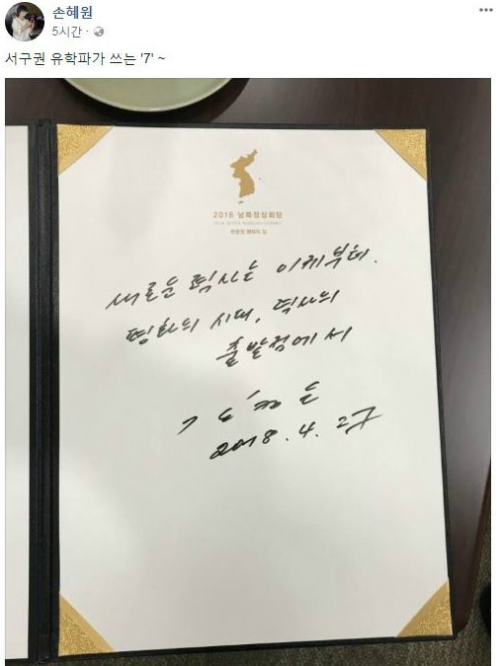 손혜원
5시간 ·
서구권 유학파가 쓰는 '7' ~
2018 남북정상회담
2018 INTER-KOREAN SUMMIT
판문점 평화의 집
새로운 력사는 이제부터.
평화의 시대, 력사의
출발점에서
김정은
2018. 4. 27